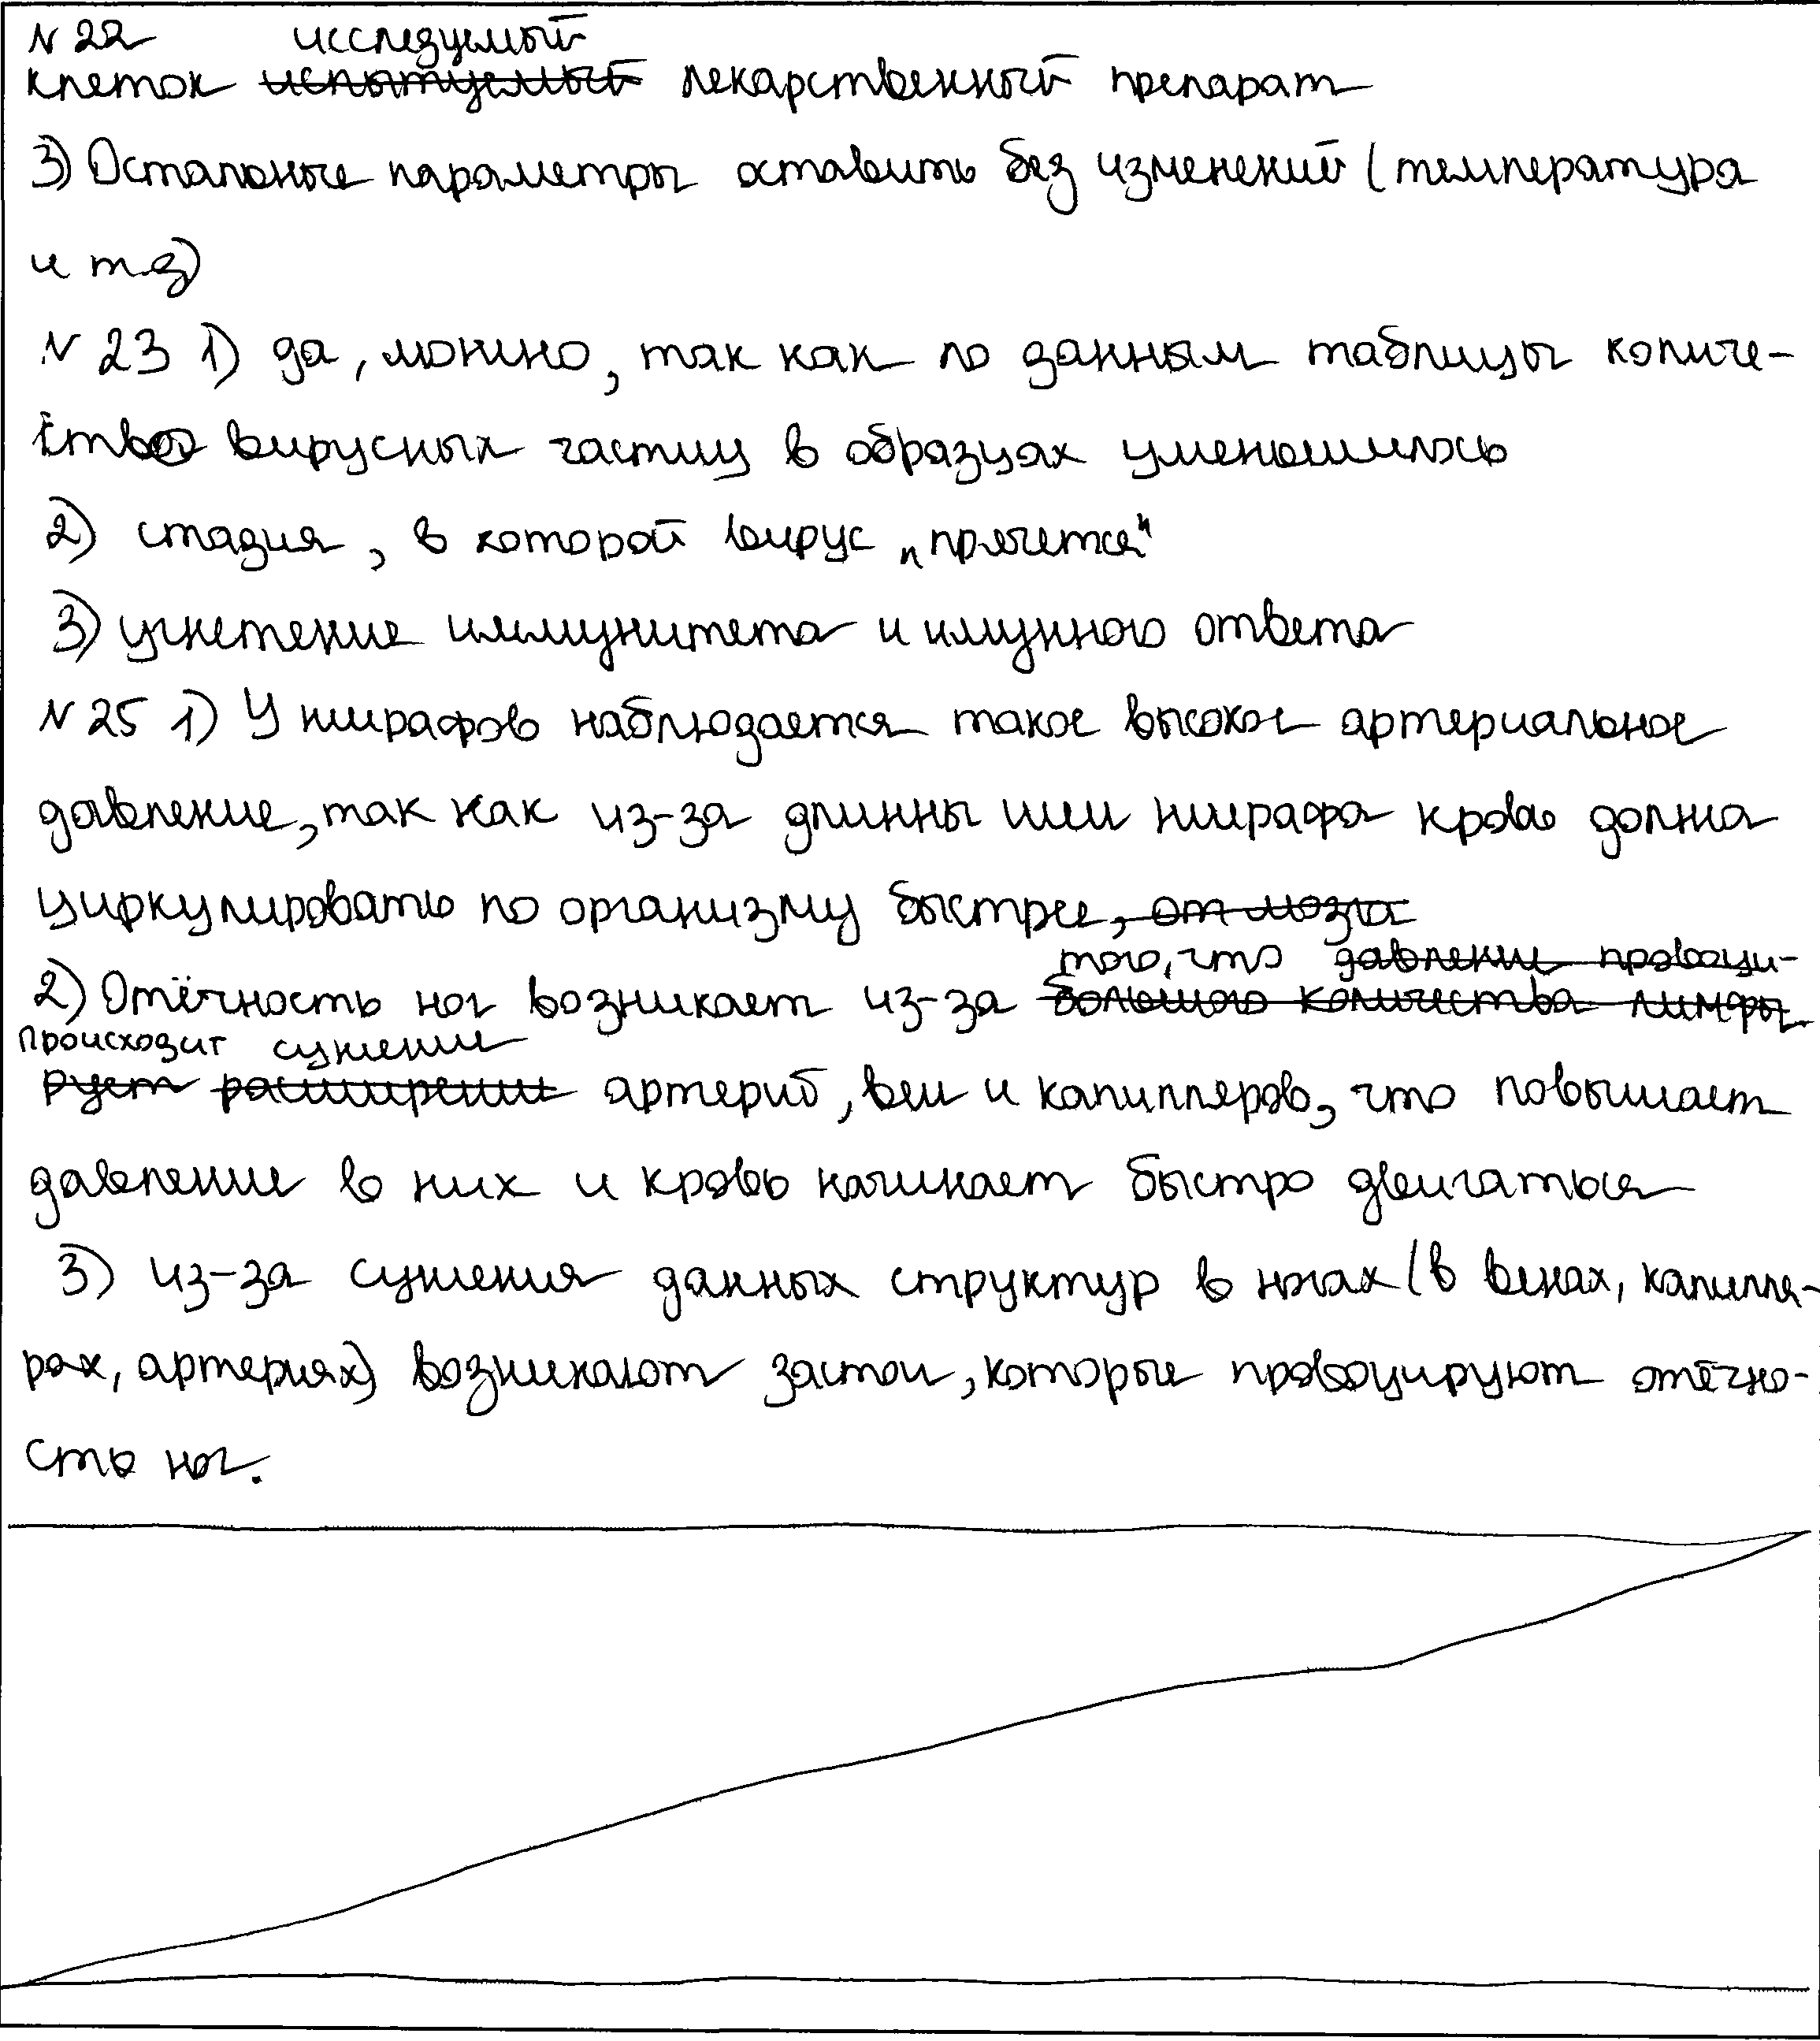 N 22 исследуемый
клеток испытуемый лекарственный препарат
3) Остальные параметры оставить без изменений (температура
и т.д)
N 23 1) да, можно, так как по данным таблицы количе-
ство вирусных частиц в образцах уменьшилось
2) стадия, в которой вирус „прячется"
3) угнетение иммунитета и имунного ответа
N 25 1) У жирафов наблюдается такое высокое артериальное
давление, так как из-за длинны шеи жирафа кровь должна
циркулировать по организму быстрее, от мозга
того, что давление провоци-
2) Отёчность ног возникает из-за большого количества лимфы
происходит сужение
рует расширение артерий, вен и капилляров, что повышает
давление в них и кровь начинает быстро двигаться
3) из-за сужения данных структур в ногах (в венах, капилля-
рах, артериях) возникают застои, которые провоцируют отёчно-
сть ног.